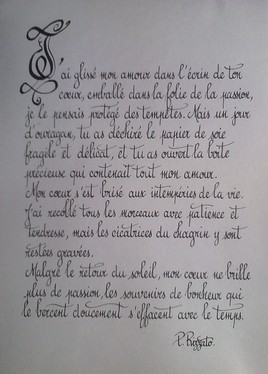 J'ai glissé mon amour dans l'écrin de ton
coeur, emballé dans la folie de la passion,
je le pensais protégé des tempêtes. Mais un jour
d'ouragan, tu as déchiré le papier de soie
fragile et délicat, et tu as ouvert la boîte
précieuse qui contenait tout mon amour.
Mon coeur s'est brisé aux intempéries de la vie.
J'ai recollé tous les morceaux avec patience et
tendresse, mais les cicatrices du chagrin y sont
restées gravées.
Malgré le retour du soleil, mon coeur ne brille
plus de passion, les souvenirs de bonheur qui
le bercent doucement s'effacent avec le temps.
P.